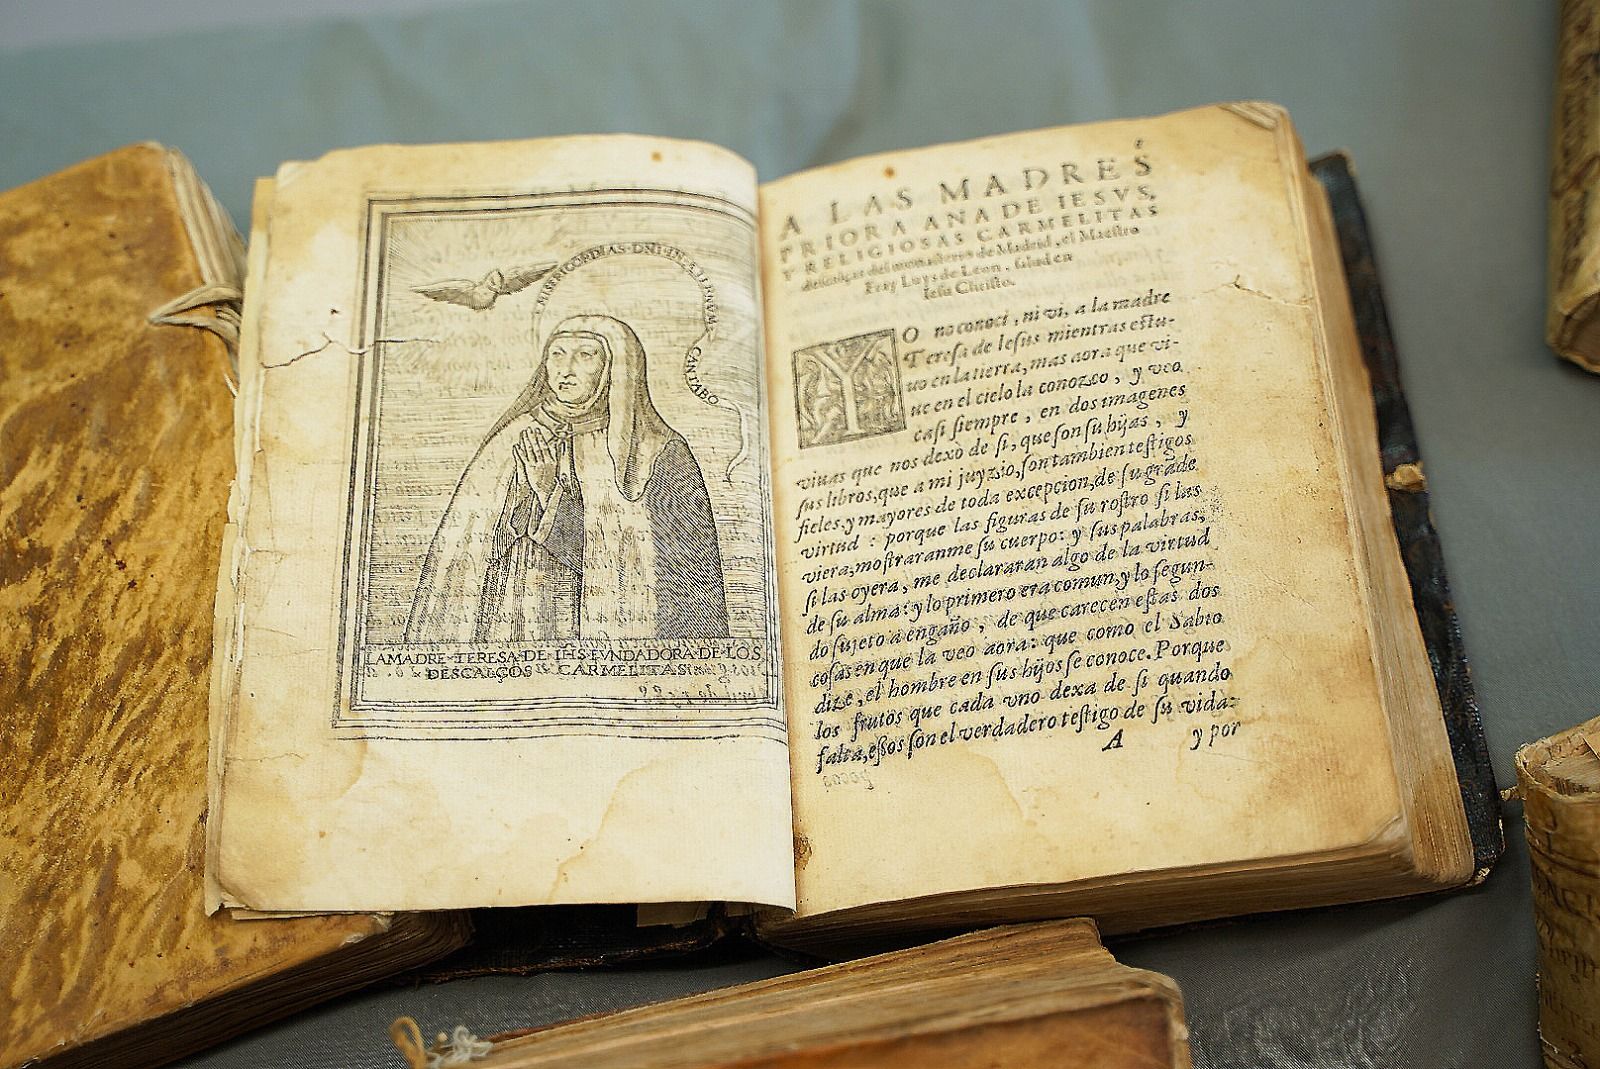 MISERICORDIAS·DNI·IN·ETERNVM·
CANTABO
LA MADRE·TERESA·DE IHS FVNDADORA·DE·LOS
DESCALÇOS CARMELITAS
A LAS MADRES
PRIORA ANA DE IESVS,
Y RELIGIOSAS CARMELITAS
descalças del monasterio de Madrid, el Maestro
Fray Luys de Leon. Salud en
Iesu Christo.
YO no conoci, ni vi, a la madre
Teresa de Iesus mientras estu-
uo en la tierra, mas aora que vi-
ue en el cielo la conozco, y veo
casi siempre, en dos imagenes
viuas que nos dexo de si, que son su hijas, y
sus libros, que a mi juyzio, son tambien testigos
fieles, y mayores de toda excepcion, de su grãde
virtud : porque las figuras de su rostro si las
viera, mostraranme su cuerpo: y sus palabras,
si las oyera, me declararan algo de la virtud
de su alma: y lo primero era comun, y lo segun-
do sujeto a engaño, de que carecen estas dos
cosas en que la veo aora: que como el Sabio
dize, el hombre en sus hijos se conoce. Porque
los frutos que cada uno dexa de si quando
falta, essos son el verdadero testigo de su vida:
A y por